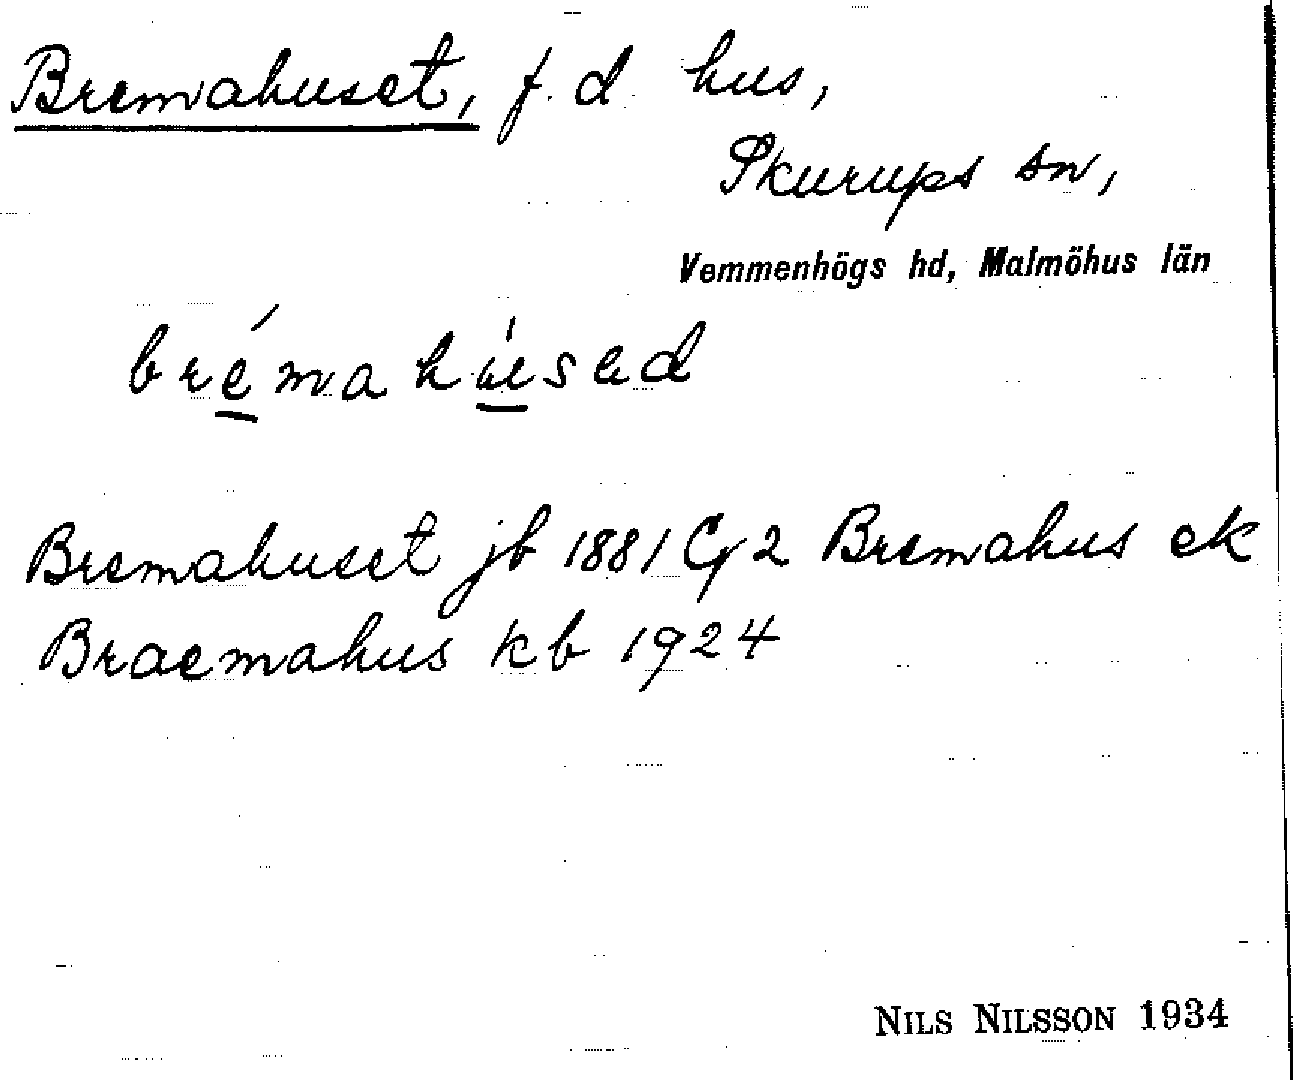 Bremahuset, f. d. hus,
Skurups sn,
Vemmenhögs hd, Malmöhus län
brémahúsad
Bremahuset jb 1881 Cg 2 Bremahus ek
Braemahus kb 1924
NILS NILSSON 1934